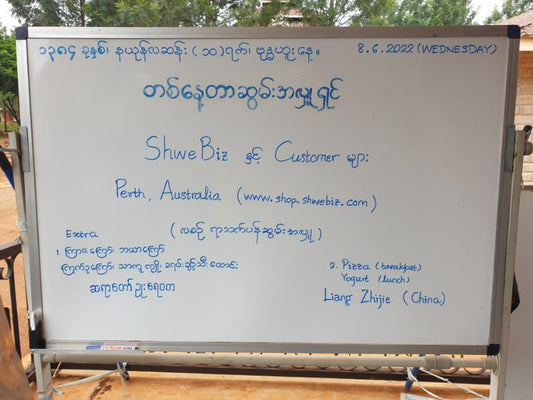 ၁၃၈၄ ခုနှစ်၊ နယုန်လဆန်း (၁၀) ရက်၊ ဗုဒ္ဓဟူးနေ့။ 8.6.2022 (WEDNESDAY)
တစ်နေ့တာဆွမ်းအလှူရှင်
ShweBiz နှင့် Customer များ
Perth, Australia (www.shop.shwebiz.com)
(လစဉ် ရာသက်ပန်ဆွမ်းအလှူ)
Extra
1. ကြာဇံကြော်၊ ဘယာကြော်
ကြက်ဥကြော်၊
ဆရာတော်ဦးရေဝတ
2. Pizza (breakfast)
Yogurt (lunch)
Liang Zhijie (China)